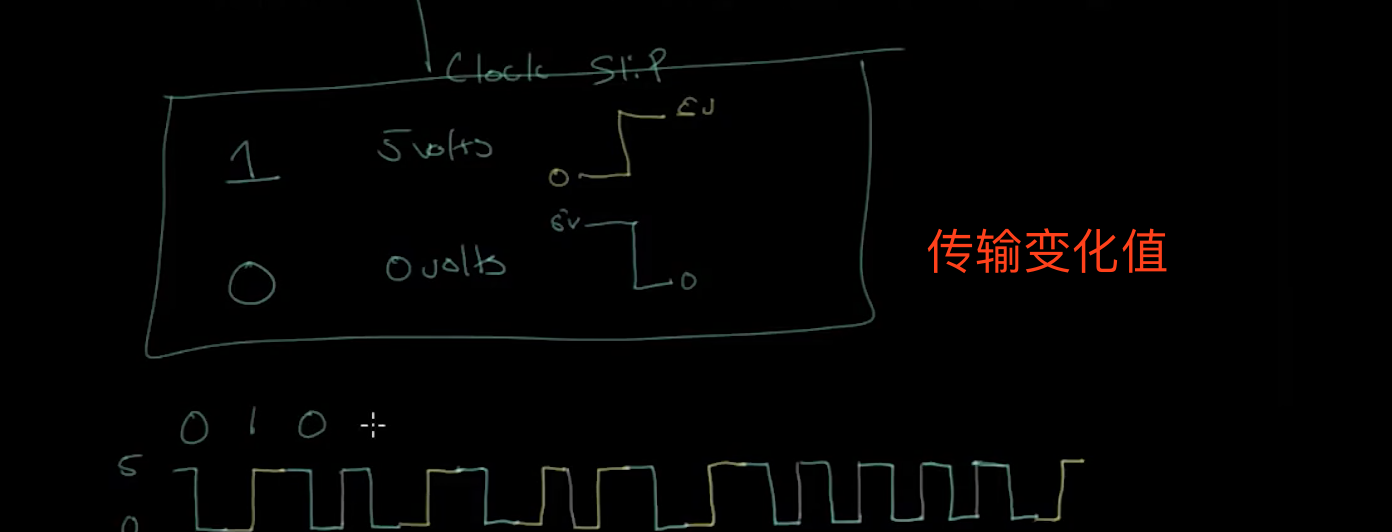 Clock Slip
1 5 volts 0 5v
0 0 volts 5v 0
传输变化值
0 1 0
5
0